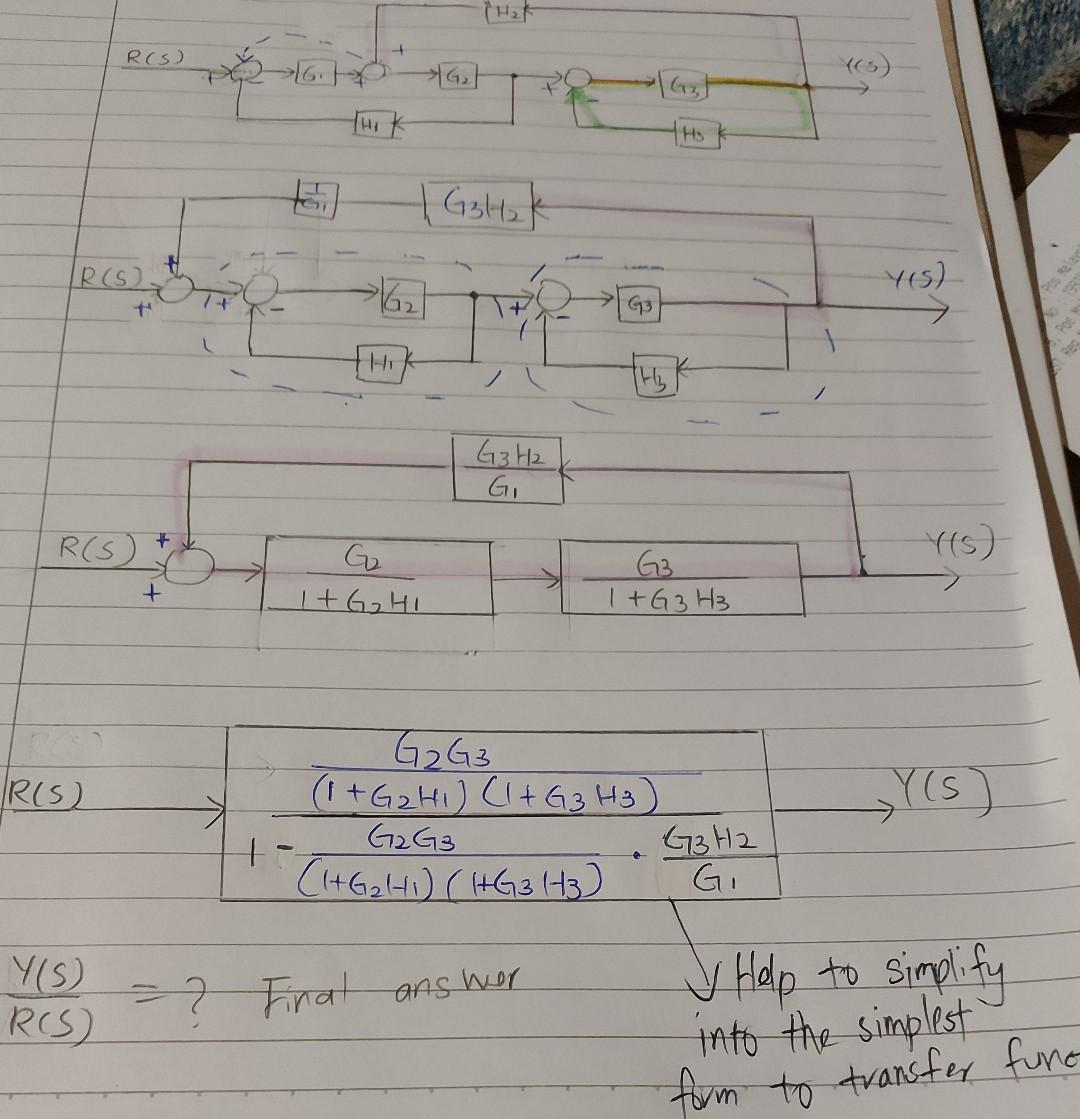 H2
R(S) + - G1 + + G2 + - G3 Y(S)
H1 H3
1/G1 G3H2
R(S) + + + - G2 + - G3 Y(S)
H1 H3
G3H2
G1
R(S) + + G2 G3 Y(S)
1+G2H1 1+G3H3
R(S)
G2G3
(1+G2H1) (1+G3H3)
R(S) Y(S)
1 - G2G3 · G3H2
(1+G2H1) (1+G3H3) G1
Y(S) = ? Final answer
R(S)
Help to simplify
into the simplest
form to transfer func